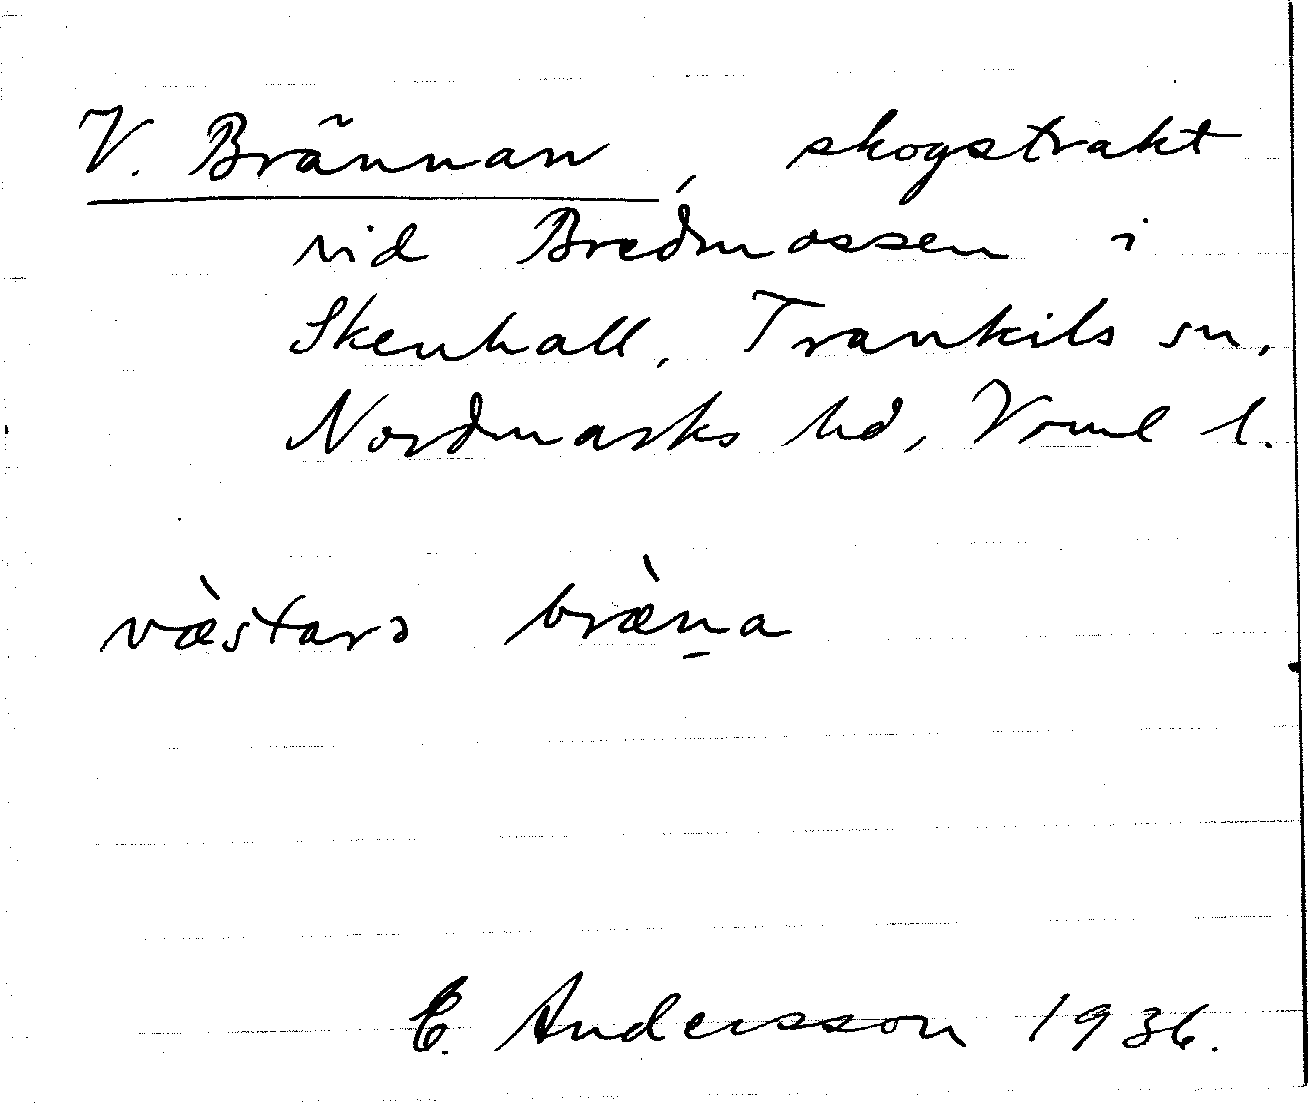 V. Brännan, skogstrakt
vid Bredmossen i
Skenhall, Trankils sn,
Nordmarks hd, Vrml l.
væ̀starə bræ̀n̠a
E. Andersson 1936.